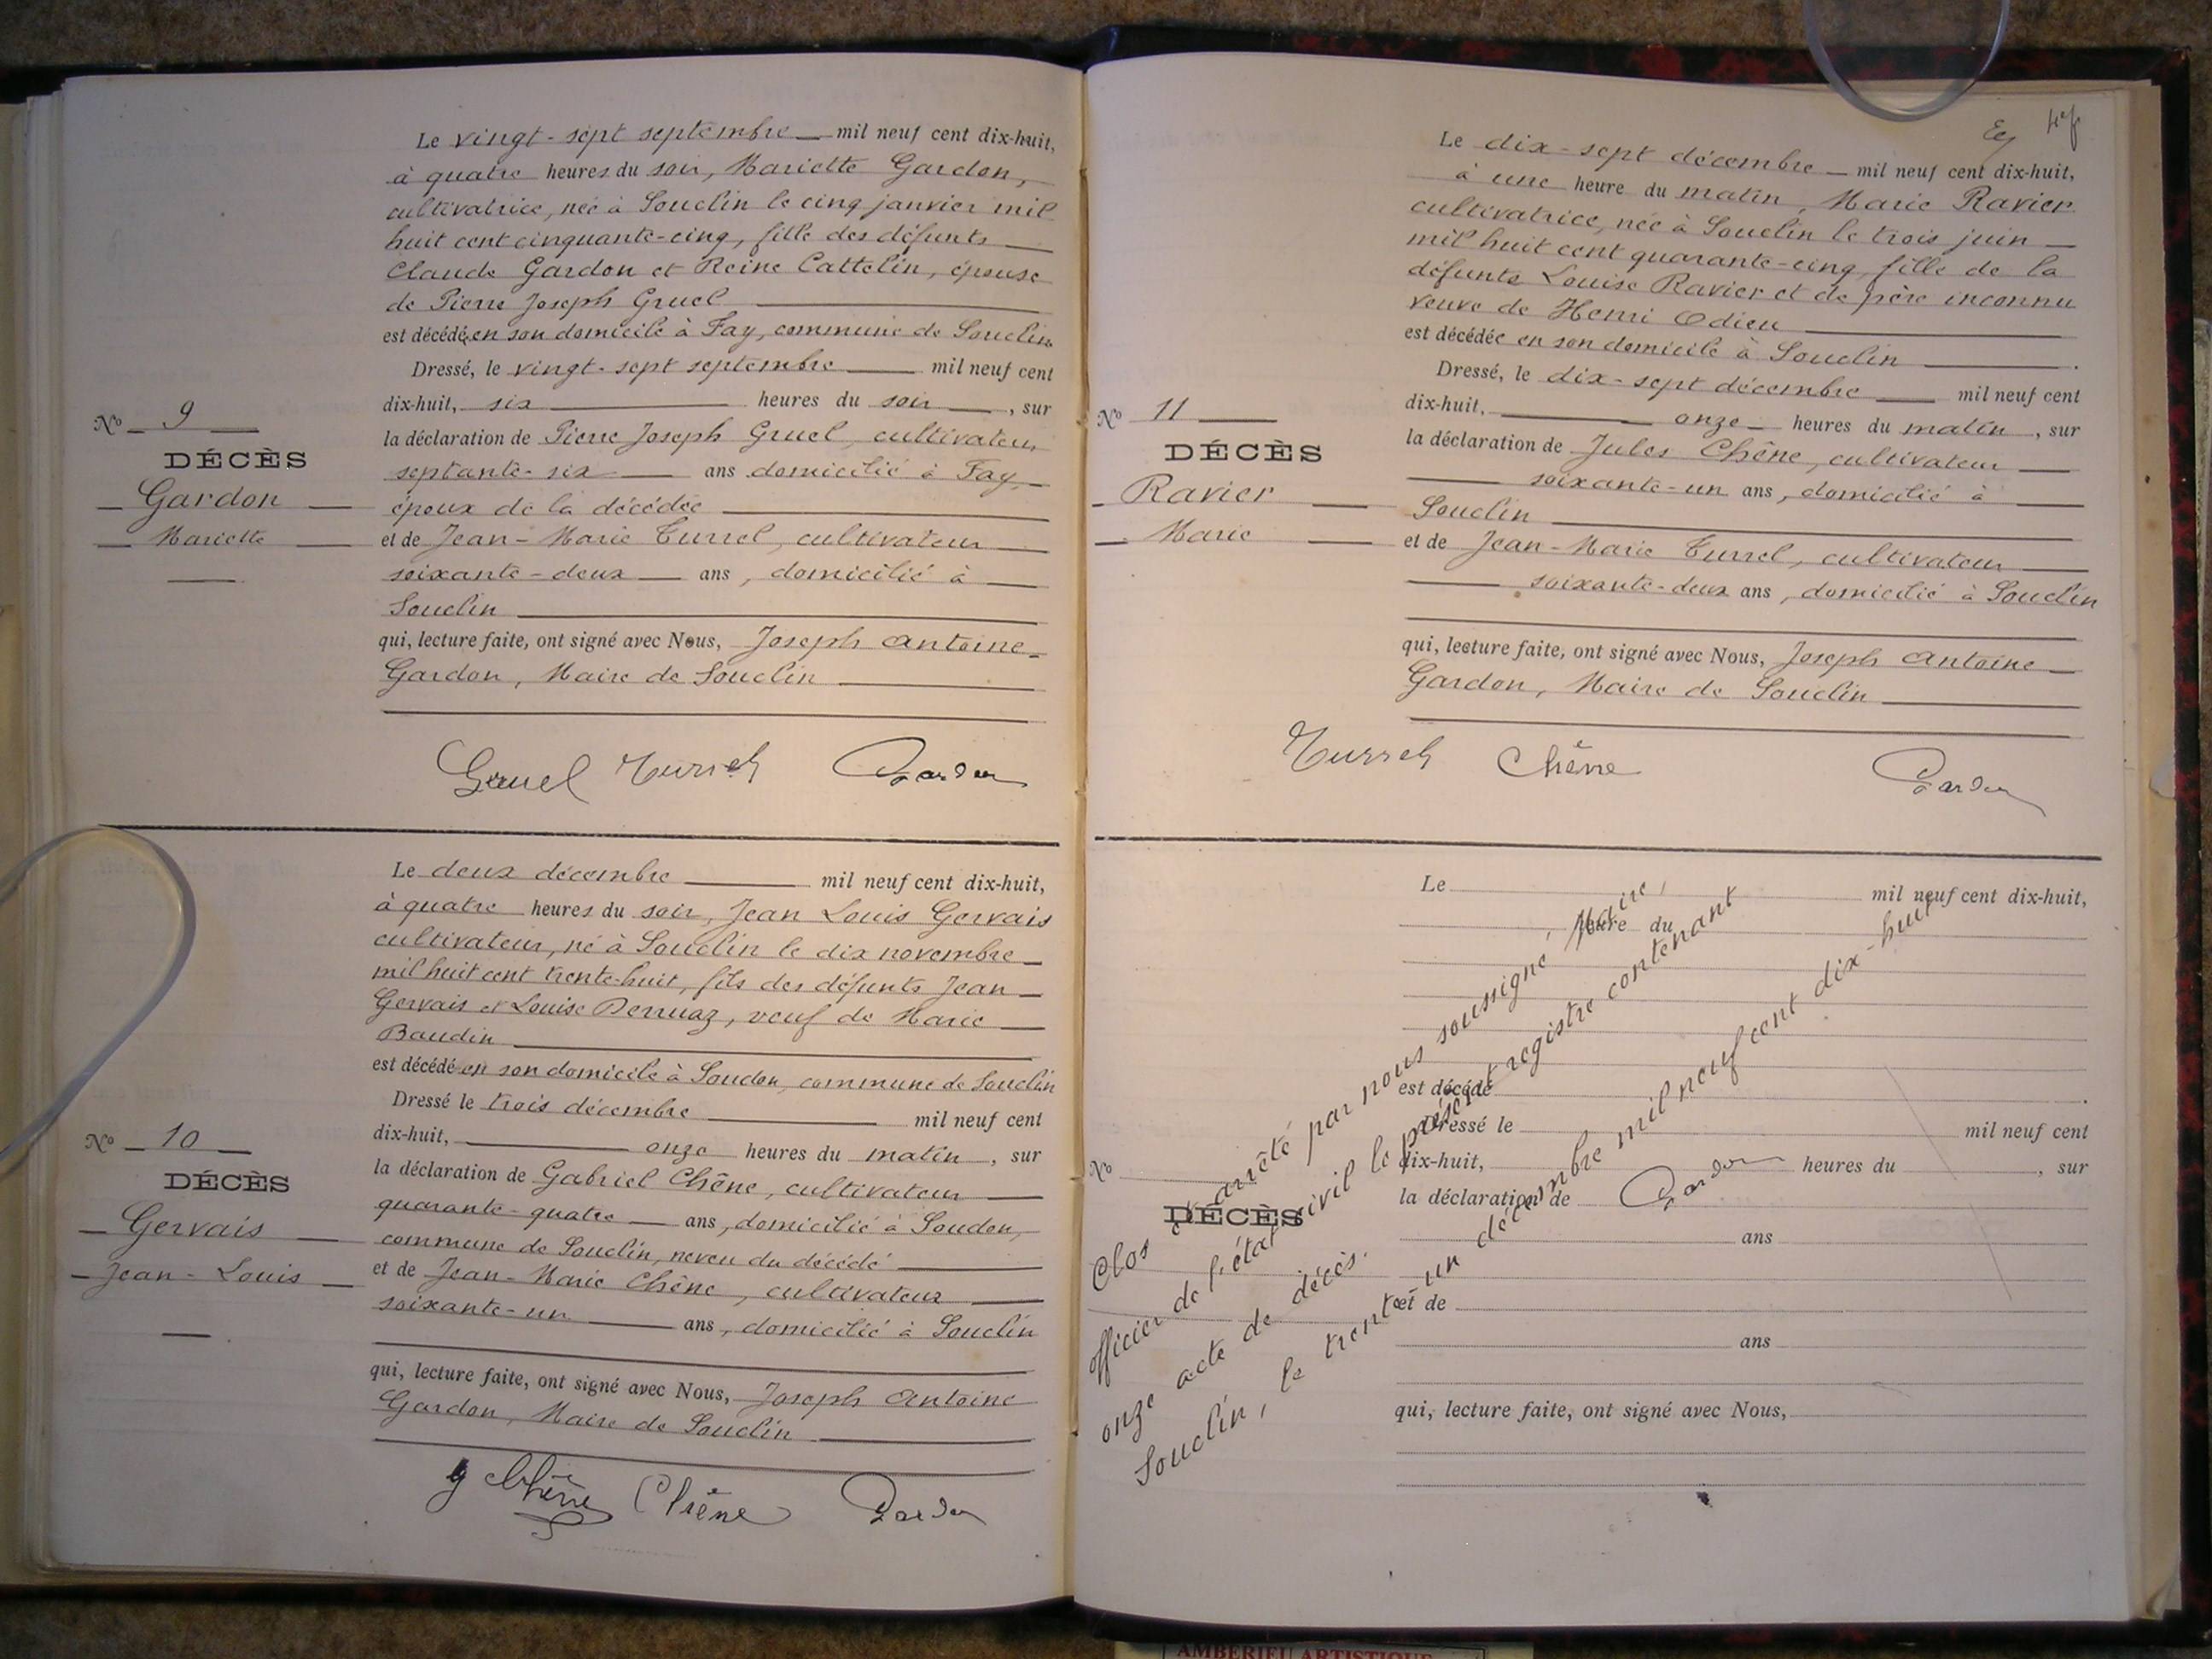 Le vingt-sept septembre mil neuf cent dix-huit,
à quatre heures du soir, Mariette Gardon,
cultivatrice, née à Souclin le cinq janvier mil
huit cent cinquante-cinq, fille des défunts
Claude Gardon et Reine Cattelin, épouse
de Pierre Joseph Gruel
est décédée en son domicile à Fay, commune de Souclin
Dressé, le vingt-sept septembre mil neuf cent
dix-huit, six heures du soir, sur
la déclaration de Pierre Joseph Gruel, cultivateur
septante-six ans domicilié à Fay,
époux de la décédée
et de Jean-Marie Turrel, cultivateur
soixante-deux ans, domicilié à
Souclin
qui, lecture faite, ont signé avec Nous, Joseph Antoine
Gardon, Maire de Souclin
Nº 9
DÉCÈS
Gardon
Mariette
Gruel Turrel Gardon
Le deux décembre mil neuf cent dix-huit,
à quatre heures du soir, Jean Louis Gervais
cultivateur, né à Souclin le dix novembre
mil huit cent trente-huit, fils des défunts Jean
Gervais et Louise Perruaz, veuf de Marie
Baudin
est décédé en son domicile à Soudon, commune de Souclin
Dressé le trois décembre mil neuf cent
dix-huit, onze heures du matin, sur
la déclaration de Gabriel Chêne, cultivateur
quarante-quatre ans, domicilié à Soudon,
commune de Souclin, neveu du décédé
et de Jean-Marie Chêne, cultivateur
soixante-un ans, domicilié à Souclin
qui, lecture faite, ont signé avec Nous, Joseph Antoine
Gardon, Maire de Souclin
Nº 10
DÉCÈS
Gervais
Jean-Louis
g Chêne Chêne Gardon
Le dix-sept décembre mil neuf cent dix-huit,
à une heure du matin, Marie Ravier
cultivatrice, née à Souclin le trois juin
mil huit cent quarante-cinq, fille de la
défunte Louise Ravier et de père inconnu
veuve de Henri Odieu
est décédée en son domicile à Souclin.
Dressé, le dix-sept décembre mil neuf cent
dix-huit, onze heures du matin, sur
la déclaration de Jules Chêne, cultivateur
soixante-un ans, domicilié à
Souclin
et de Jean-Marie Turrel, cultivateur
soixante-deux ans, domicilié à Souclin
qui, lecture faite, ont signé avec Nous, Joseph Antoine
Gardon, Maire de Souclin
Nº 11
DÉCÈS
Ravier
Marie
Turrel Chêne Gardon
Le mil neuf cent dix-huit,
heure du
est décédé .
Dressé le mil neuf cent
dix-huit, heures du , sur
la déclaration de
ans
et de
ans
qui, lecture faite, ont signé avec Nous,
Nº
DÉCÈS
Clos et arrêté par nous soussigné, Maire,
officier de l'état civil le présent registre contenant
onze acte de décès.
Souclin, le trente-un décembre mil neuf cent dix-huit
Gardon
AMBERIEU ARTISTIQUE